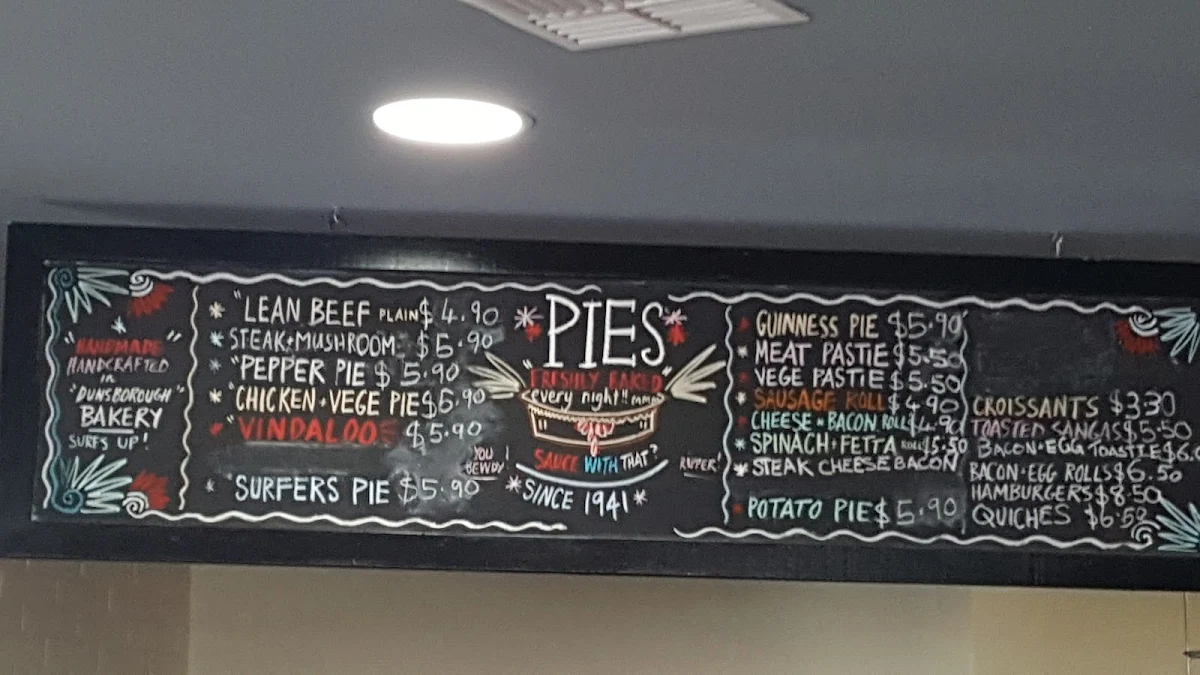 "HANDMADE"
HANDCRAFTED
in
"DUNSBOROUGH"
BAKERY
SURFS UP!
"LEAN BEEF PLAIN $4.90
STEAK+MUSHROOM $5.90
"PEPPER PIE $5.90
"CHICKEN+VEGE PIE $5.90
"VINDALOO $5.90
"SURFERS PIE $5.90
PIES
"FRESHLY BAKED"
every night!! mmm
SAUCE WITH THAT?
YOU
BEWDY!
RIPPER!
*SINCE 1941*
GUINNESS PIE $5.90
MEAT PASTIE $5.50
VEGE PASTIE $5.50
SAUSAGE ROLL $4.90
CHEESE N BACON ROLL $4.90
SPINACH+FETTA ROLL $5.50
STEAK CHEESE BACON
POTATO PIE $5.90
CROISSANTS $3.30
TOASTED SANGAS $5.50
BACON+EGG TOASTIE $6.0
BACON+EGG ROLLS $6.50
HAMBURGERS $8.50
QUICHES $6.50